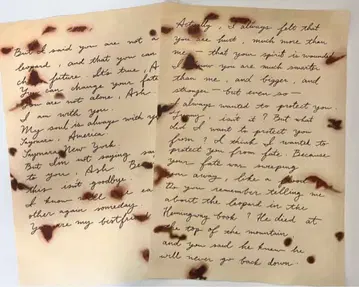 But I said you are not a
leopard, and that you can
change future. It's true, A
You can change your fate
You are not alone, Ash
I am with you.
My soul is always with yo
Sayonara, America
Sayonara New York
But I'm not saying
to you, Ash. Be
this isn't goodbye.
I know will ea
other again someday
You are my best frie
Actually, I always felt that
you are hurt, much more than
me — that your spirit is wounded
I know you are much smarter
than me, and bigger, and
stronger — but even so —
I always wanted to protect you.
isn't it? But what
did I want to protect you
from? I think I wanted to
protect you from fate. Because
your fate was sweeping
you away, like a
Do you remember telling me
about the leopard in the
Hemingway book? He died at
the top of the mountain
and you said he knew he
will never go back down.